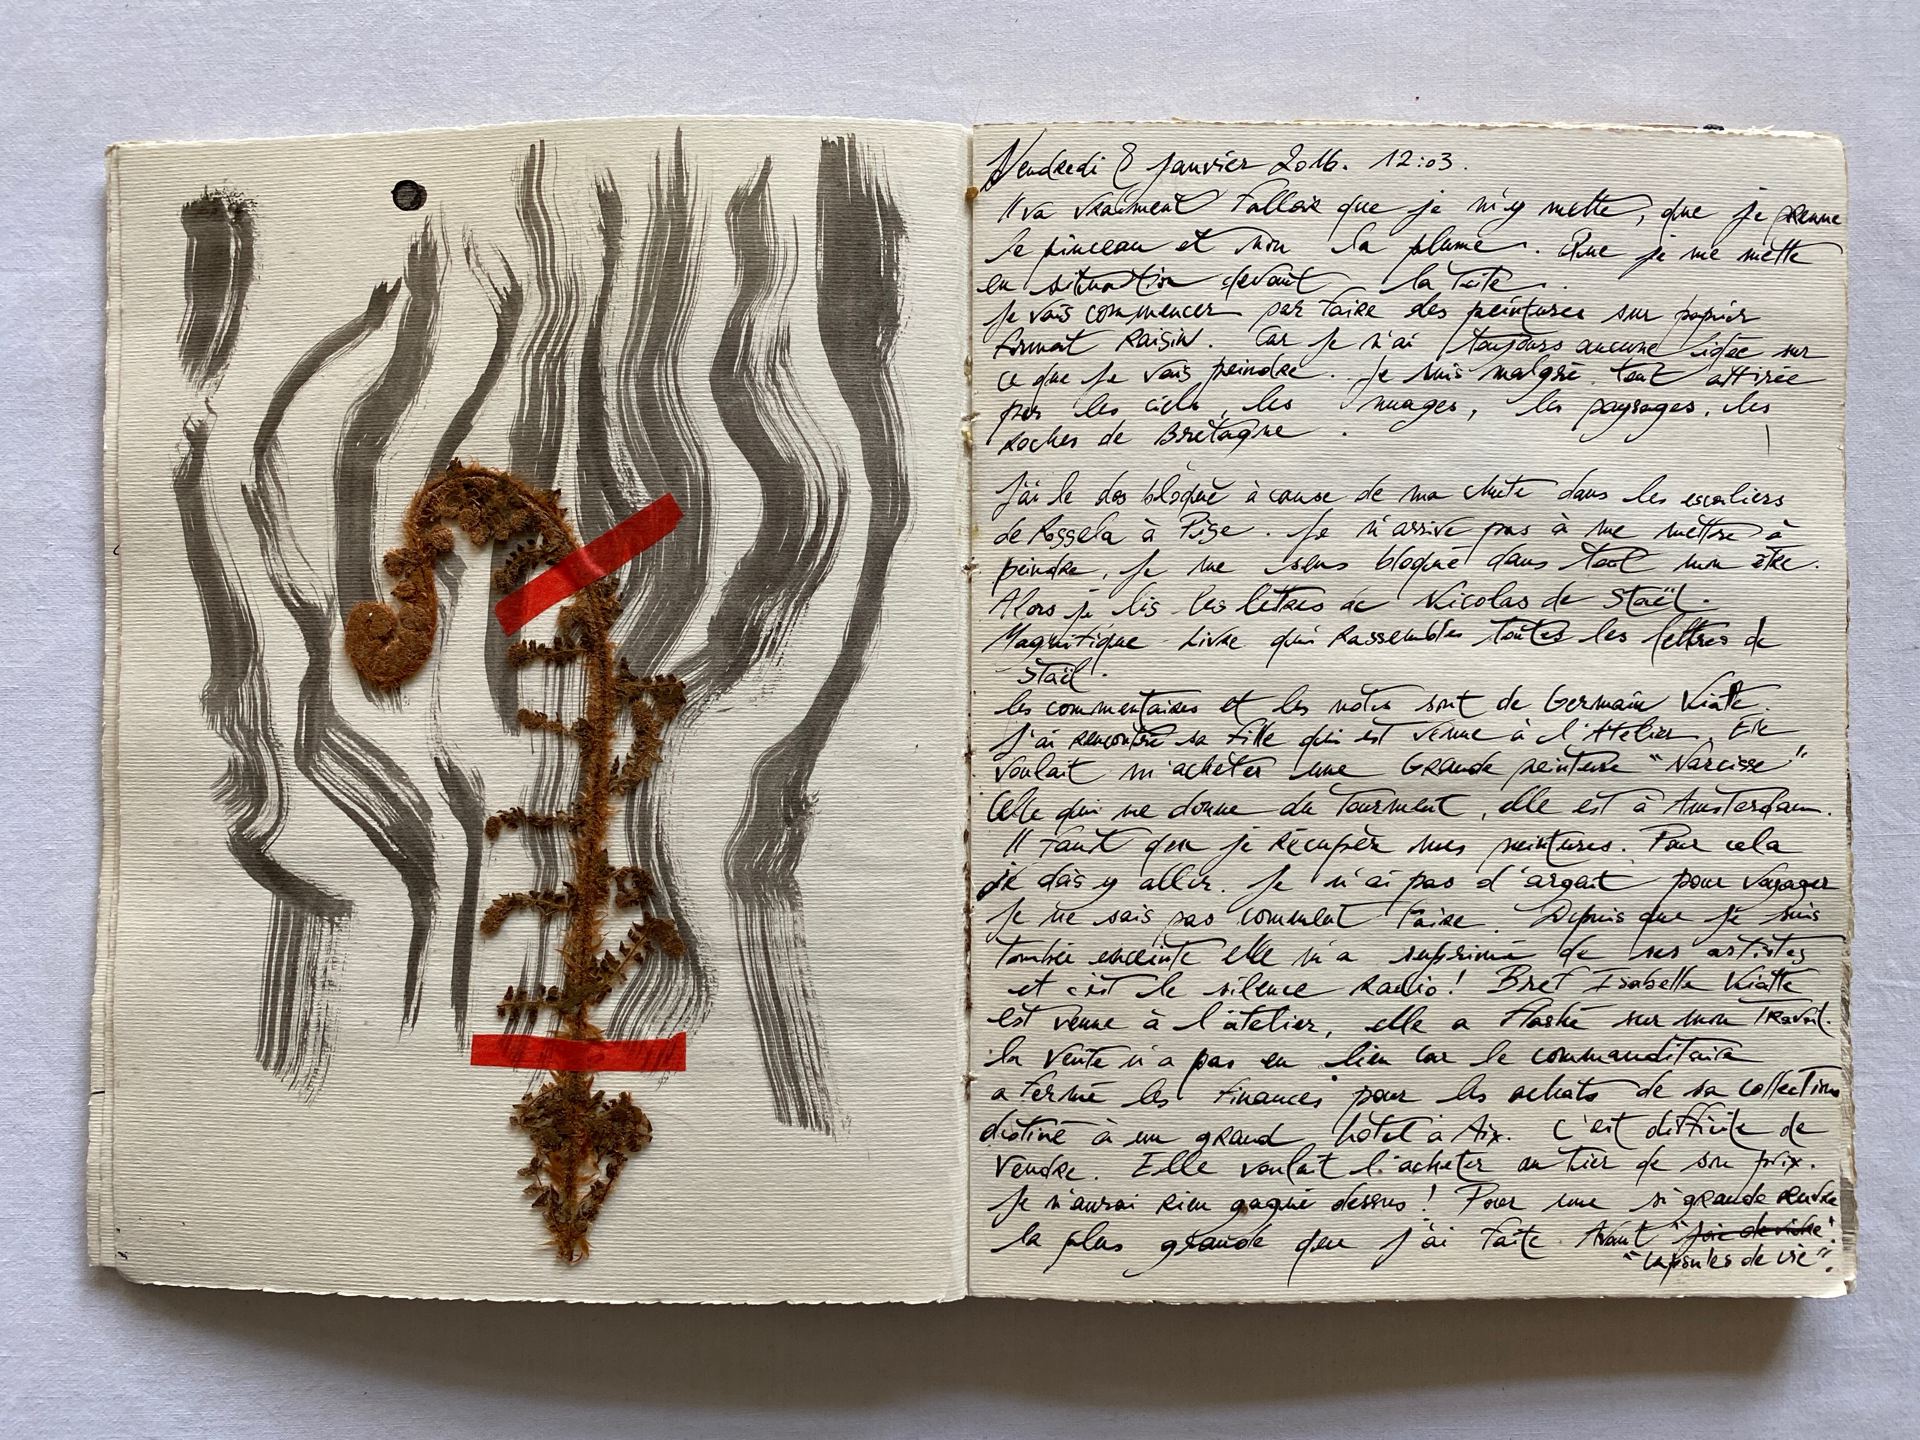 Vendredi 8 Janvier 2016. 12:03.
Il va vraiment falloir que je m'y mette, que je prenne
le pinceau et non la plume. Que je me mette
en situation devant la toile.
Je vais commencer par faire des peintures sur papier
format Raisin. Car je n'ai toujours aucune idée sur
ce que je vais peindre. Je suis malgré tout attirée
par les ciels, les nuages, les paysages, les
Roches de Bretagne.
J'ai le dos bloqué à cause de ma chute dans les escaliers
de Rossela à Pise. Je n'arrive pas à me mettre à
peindre, je me sens bloqué dans tout mon être.
Alors je lis les lettres de Nicolas de Staël.
Magnifique Livre qui Rassembles toutes les lettres de
Staël.
les commentaires et les notes sont de Germain Viatte.
J'ai Rencontré sa fille qui est venue à l'Atelier. Elle
voulait m'acheter une Grande peinture "Narcisse"
Celle qui me donne du tourment, elle est à Amsterdam.
Il faut que je Récupère mes peintures. Pour cela
je dois y aller. Je n'ai pas d'argent pour voyager
Je ne sais pas comment faire. Depuis que je suis
tombée enceinte elle m'a suprimé de ses artistes
et c'est le silence Radio! Bref Isabelle Viatte
est venue à l'atelier, elle a flashé sur mon Travail.
la vente n'a pas eu lieu car le commanditaire
a fermé les finances pour les achats de sa collection
destiné à un grand hôtel à Aix. C'est difficile de
vendre. Elle voulait l'acheter au tier de son prix.
Je n'aurai Rien gagné dessus! Pour une si grande
la plus grande que j'ai faite. Avant "joie de vivre".
"capsules de vie".